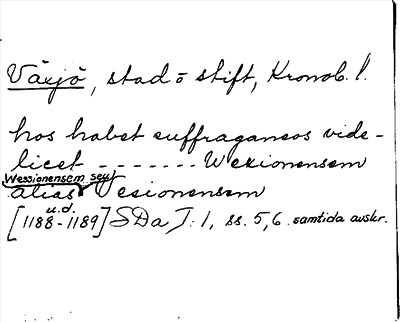 Växjö, stad o stift, Kronob. l.
hos habet suffraganeos vide-
licet - - - - - - - Wexionensem
Wessionensem seu
alias Vesionensem
u.d.
[1188-1189] SDa I: 1, ss. 5, 6. samtida avskr.